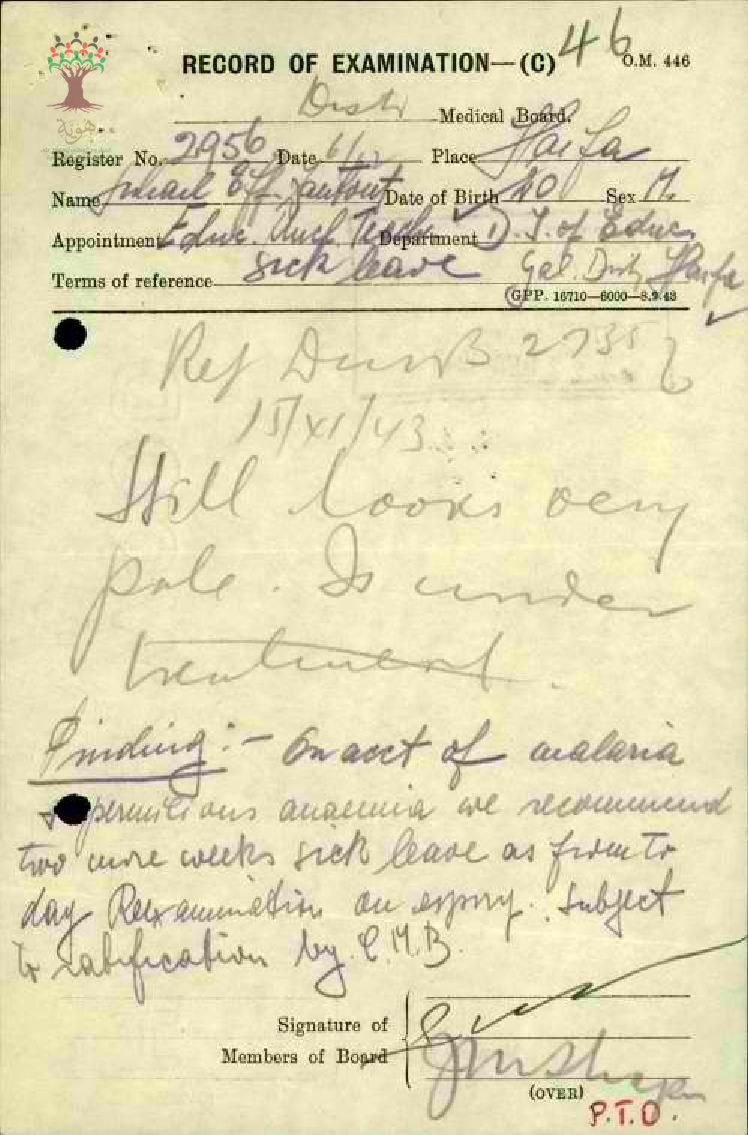 46
RECORD OF EXAMINATION—(C) O.M. 446
Dist Medical Board.
هوية
Register No. 2956 Date 6/ Place Haifa
Name Eff. Date of Birth 10 Sex M.
Appointment Educ. Department D. I. of Educ.
Terms of reference sick leave Gal. Dist. Haifa
GPP. 16710—6000—8.9.43
Ref 2735
15/XI/43
Still looks very
pale. Is under
treatment.
Finding:— On acct of malaria
& pernicious anaemia we recommend
two more weeks sick leave as from to
day Reexamination on expiry. Subject
to ratification by C.M.B.
Signature of
Members of Board
(OVER)
P.T.O.